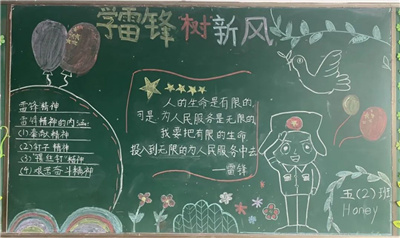 学雷锋树新风
雷锋精神
雷锋精神的内涵:
(1)奉献精神
(2)钉子精神
(3)螺丝钉精神
(4)艰苦奋斗精神
人的生命是有限的,
可是,为人民服务是无限的,
我要把有限的生命
投入到无限的为人民服务中去
——雷锋
五(2)班
Honey